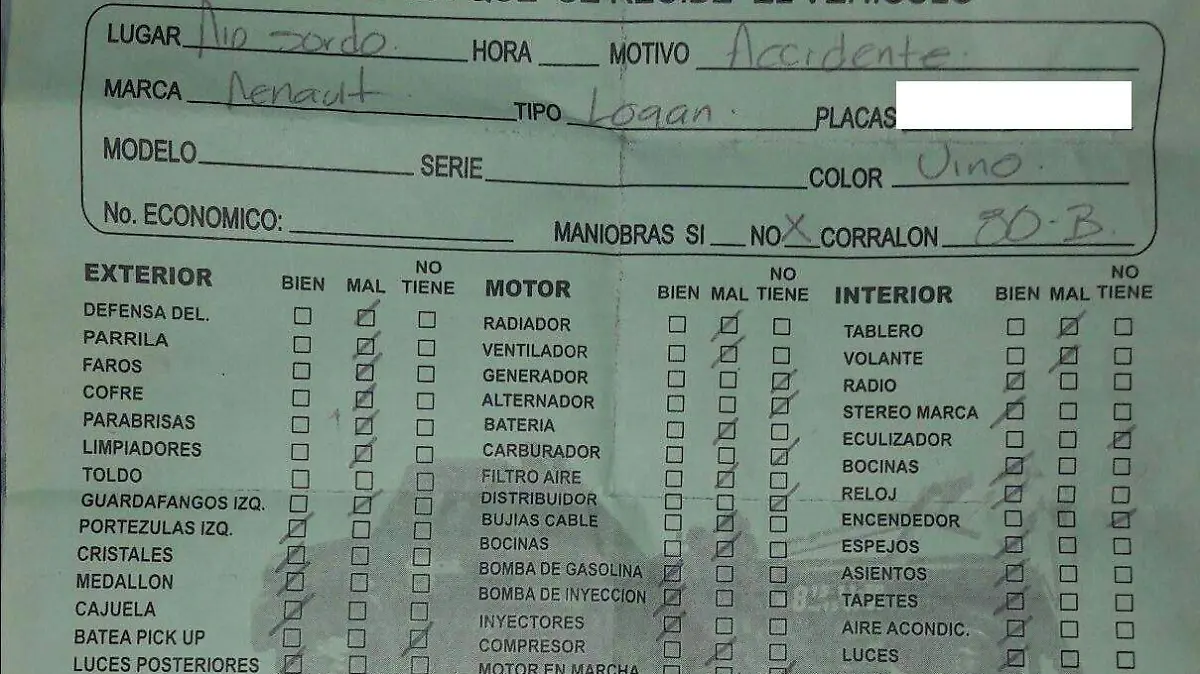 QUE SE RECIBE EL VEHICULO
LUGAR Rio Sordo. HORA ___ MOTIVO Accidente.
MARCA Renault. TIPO Logan. PLACAS
MODELO SERIE COLOR Vino.
No. ECONOMICO: MANIOBRAS SI ___ NO X CORRALON 30-B.
EXTERIOR BIEN MAL NO TIENE MOTOR BIEN MAL NO TIENE INTERIOR BIEN MAL NO TIENE
DEFENSA DEL. RADIADOR TABLERO
PARRILA VENTILADOR VOLANTE
FAROS GENERADOR RADIO
COFRE ALTERNADOR STEREO MARCA
PARABRISAS BATERIA ECULIZADOR
LIMPIADORES CARBURADOR BOCINAS
TOLDO FILTRO AIRE RELOJ
GUARDAFANGOS IZQ. DISTRIBUIDOR ENCENDEDOR
PORTEZULAS IZQ. BUJIAS CABLE ESPEJOS
CRISTALES BOCINAS ASIENTOS
MEDALLON BOMBA DE GASOLINA TAPETES
CAJUELA BOMBA DE INYECCION AIRE ACONDIC.
BATEA PICK UP INYECTORES LUCES
LUCES POSTERIORES COMPRESOR
MOTOR EN MARCHA